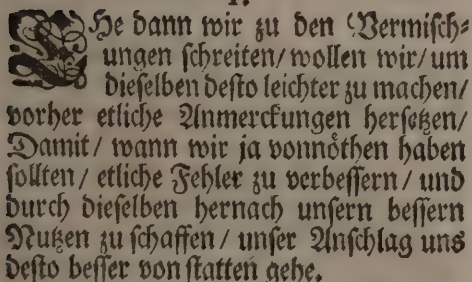 1.
EHe dann wir zu den Vermisch⸗
ungen schreiten/ wollen wir/ um
dieselben desto leichter zu machen/
vorher etliche Anmerckungen hersetzen/
Damit/ wann wir ja vonnöthen haben
sollten/ etliche Fehler zu verbessern/ und
durch dieselben hernach unsern bessern
Nutzen zu schaffen/ unser Anschlag uns
desto besser von statten gehe.